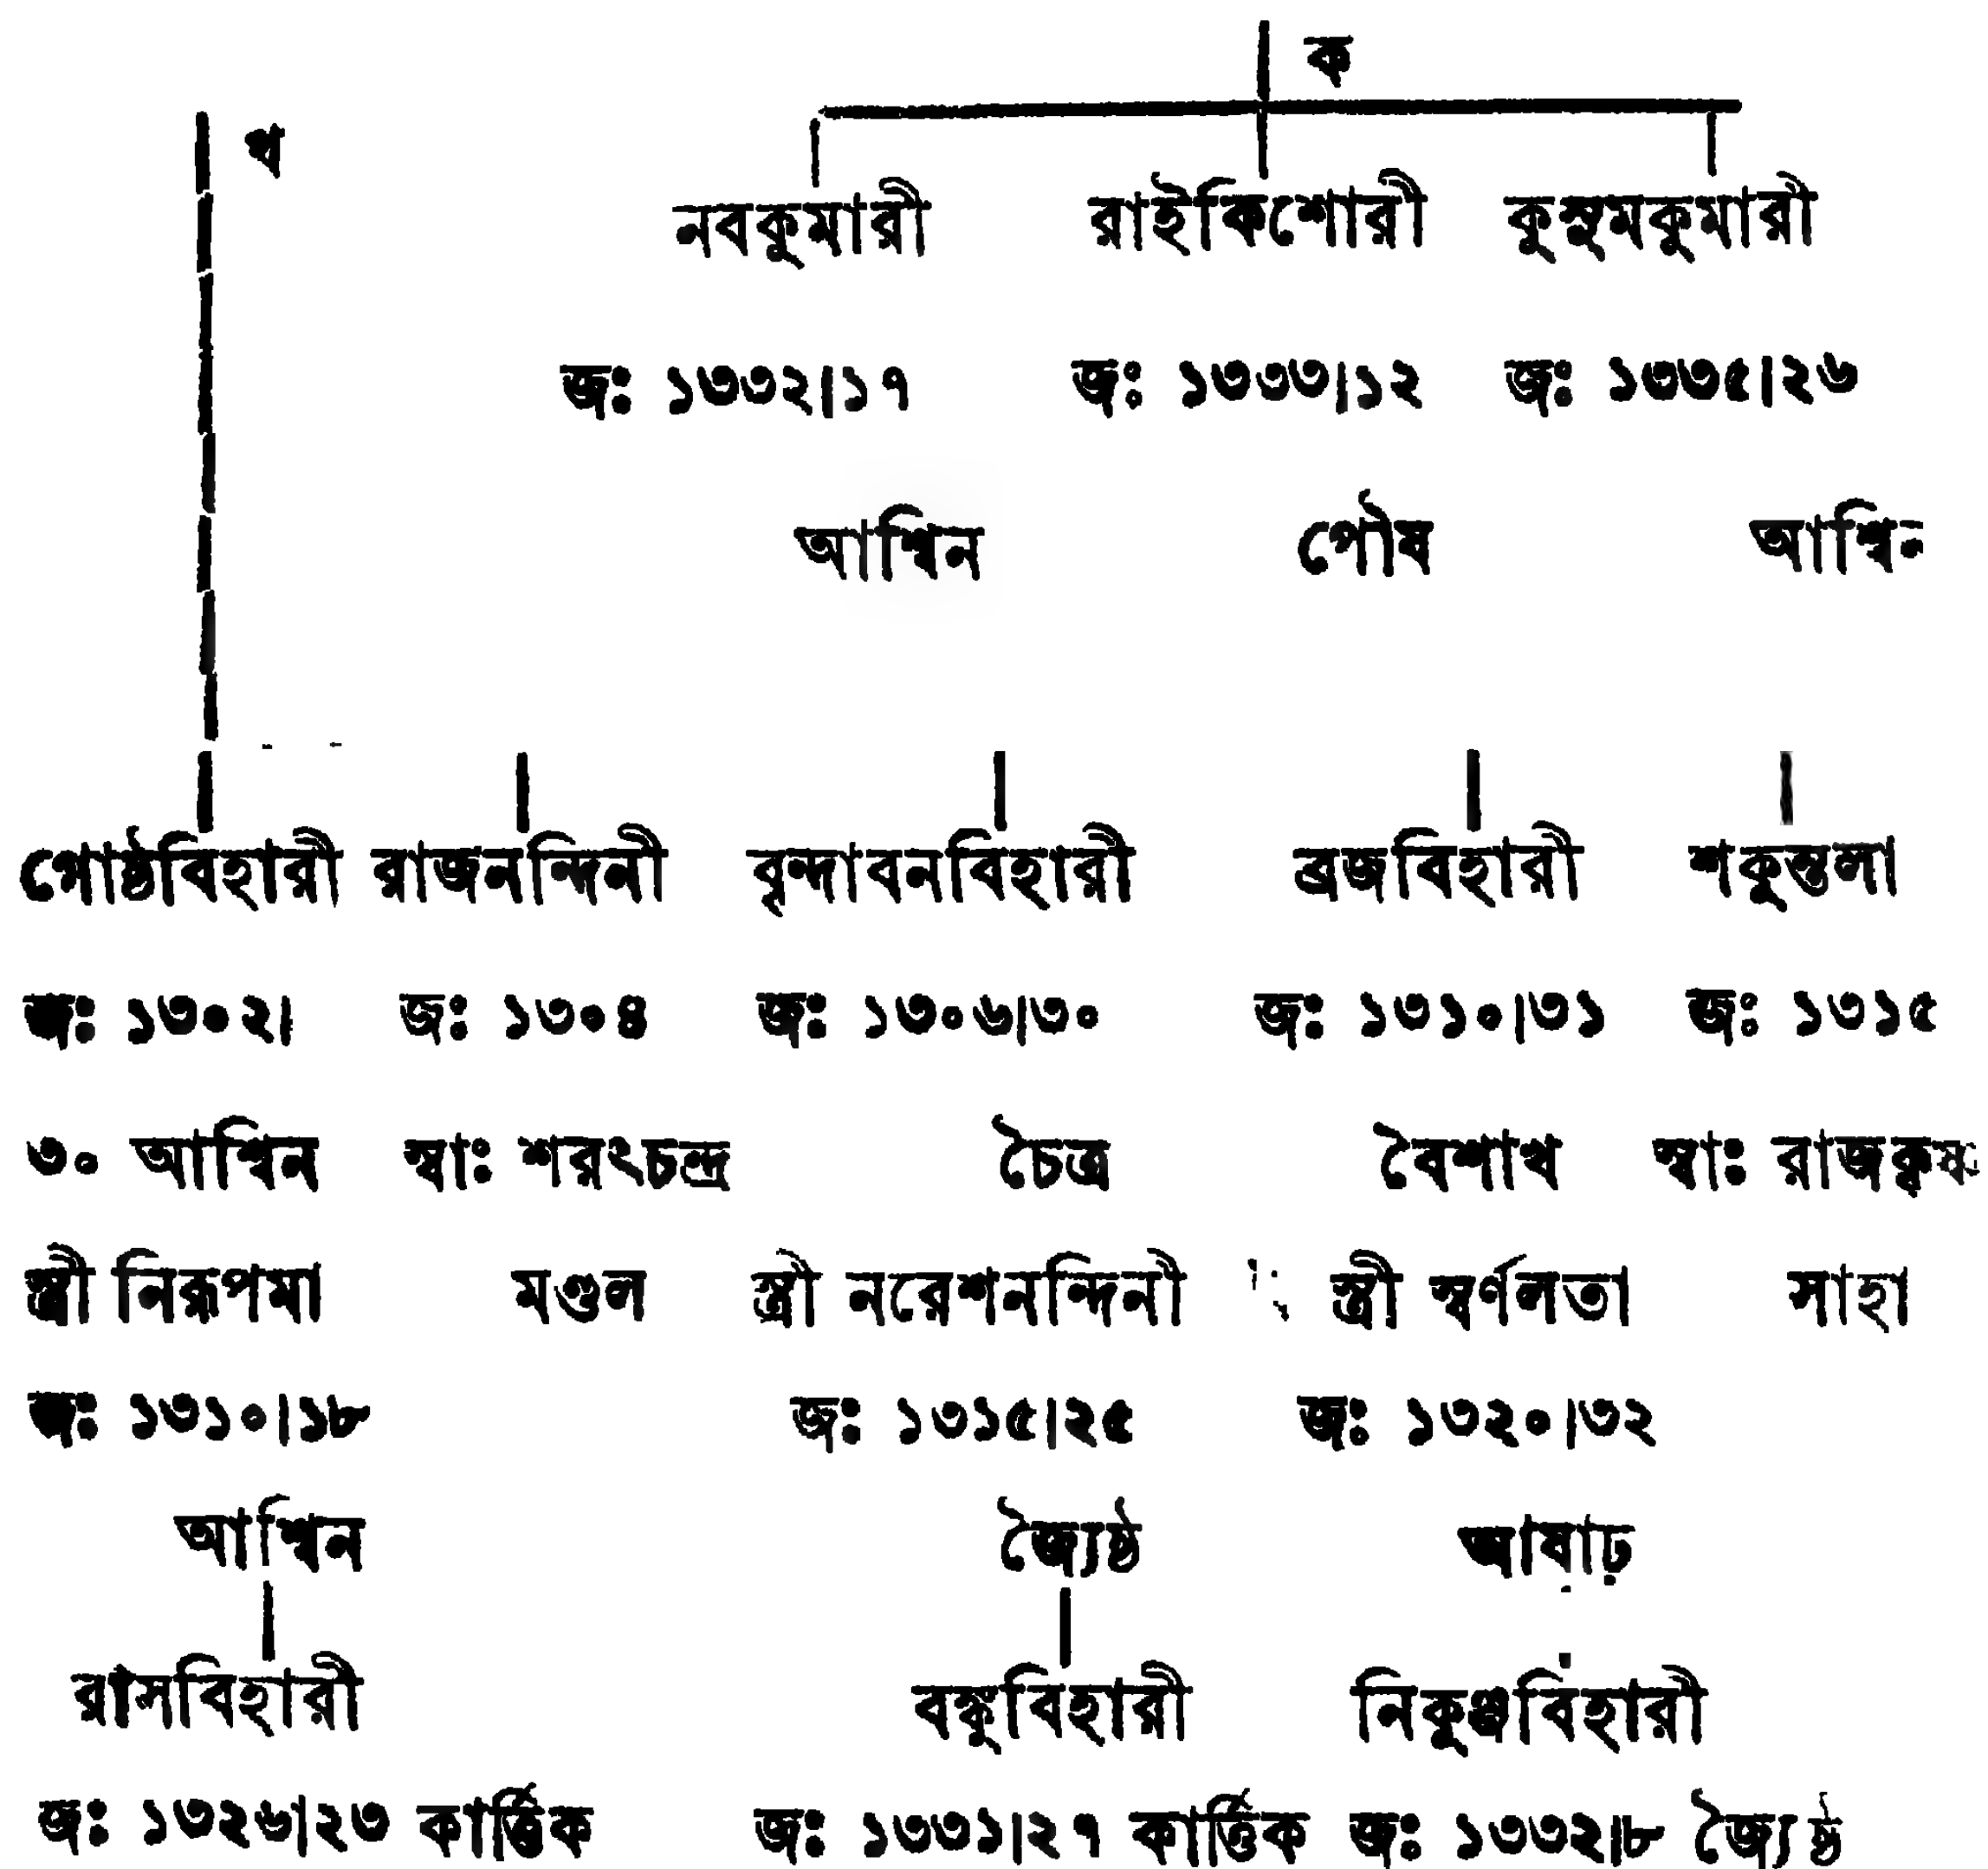 ক
খ
নবকুমারী রাইকিশোরী কুসুমকুমারী
জঃ ১৩৩২|১৭ জঃ ১৩৩৩|১২ জঃ ১৩৩৫|২৬
আশ্বিন পৌষ আশ্বিন
গোষ্ঠবিহারী রাজনন্দিনী বৃন্দাবনবিহারী ব্রজবিহারী শকুন্তলা
জঃ ১৩০২| জঃ ১৩০৪ জঃ ১৩০৬|৩০ জঃ ১৩১০|৩১ জঃ ১৩১৫
৩০ আশ্বিন স্বাঃ শরৎচন্দ্র চৈত্র বৈশাখ স্বাঃ রাজকৃষ্ণ
স্ত্রী নিরূপমা মণ্ডল স্ত্রী নরেশনন্দিনী স্ত্রী স্বর্ণলতা সাহা
জঃ ১৩১০|১৮ জঃ ১৩১৫|২৫ জঃ ১৩২০|৩২
আশ্বিন জ্যৈষ্ঠ আষাঢ়
রাসবিহারী বঙ্কুবিহারী নিকুঞ্জবিহারী
জঃ ১৩২৬|২৩ কার্ত্তিক জঃ ১৩৩১|২৭ কার্ত্তিক জঃ ১৩৩২|৮ জ্যৈষ্ঠ